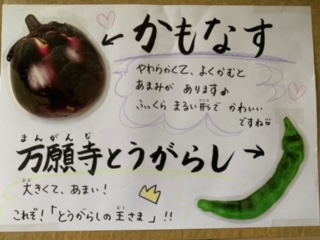 かもなす
やわらかくて、よくかむと
あまみが あります♪
ふっくら まるい形で かわいい
ですね
まんがんじ
万願寺とうがらし
大きくて、あまい!
これぞ!「とうがらしの王さま」!!